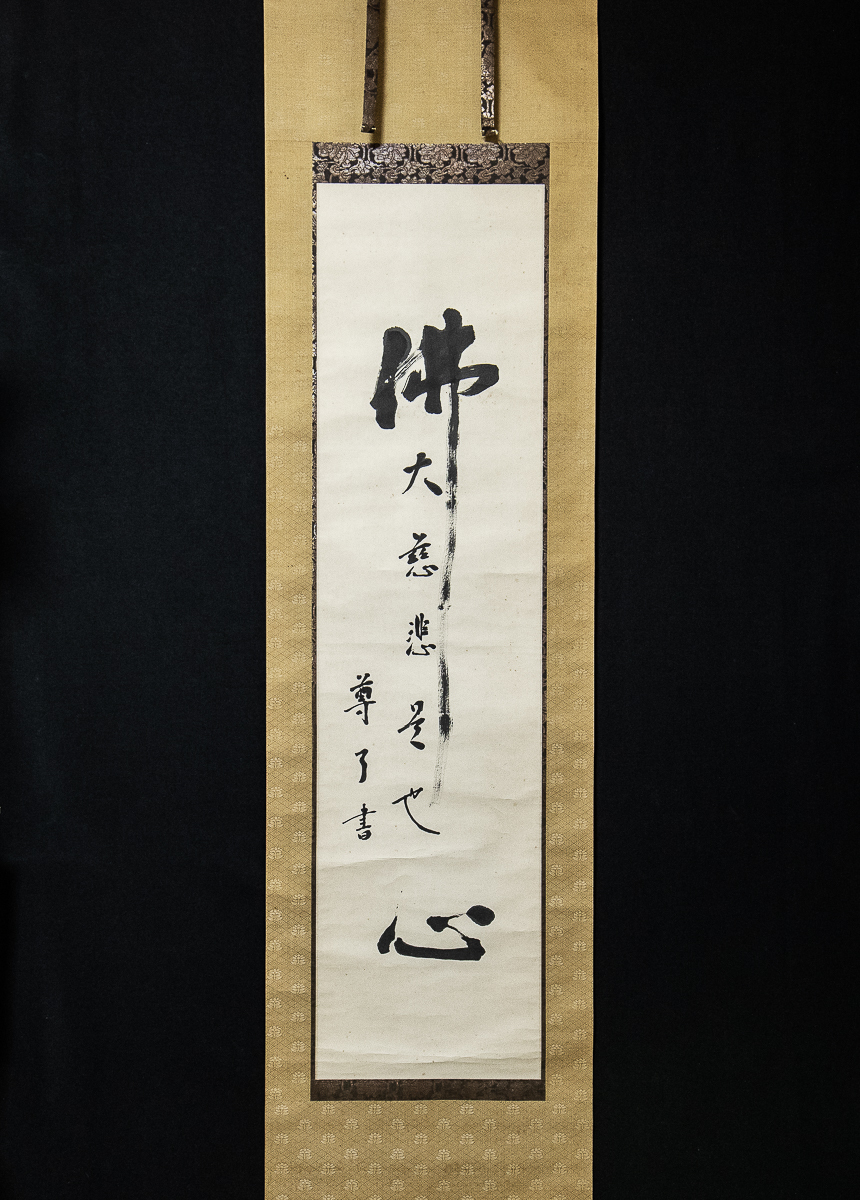 佛心
大慈悲是也
尊了書